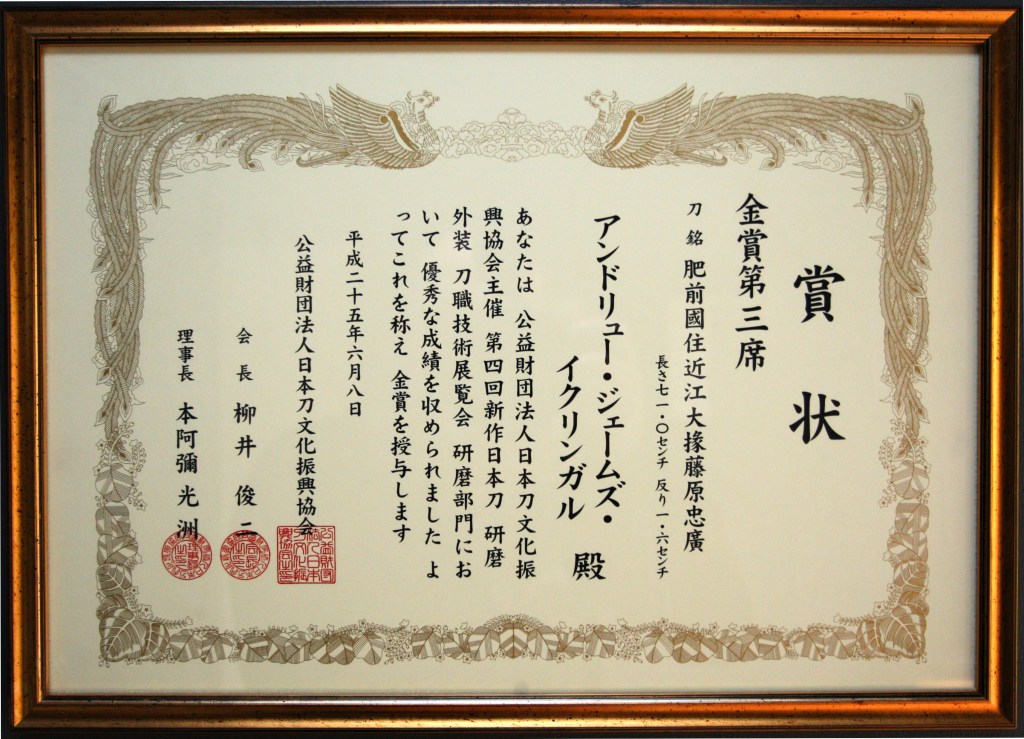 賞状
金賞第三席
刀銘 肥前國住近江大掾藤原忠廣
長さ七一・〇センチ 反り一・六センチ
アンドリュー・ジェームズ・
イクリンガル 殿
あなたは 公益財団法人日本刀文化振
興協会主催 第四回新作日本刀 研磨
外装 刀職技術展覧会 研磨部門にお
いて 優秀な成績を収められました よ
ってこれを称え 金賞を授与します
平成二十五年六月八日
公益財団法人日本刀文化振興協会
会長 柳井俊二
理事長 本阿彌光洲